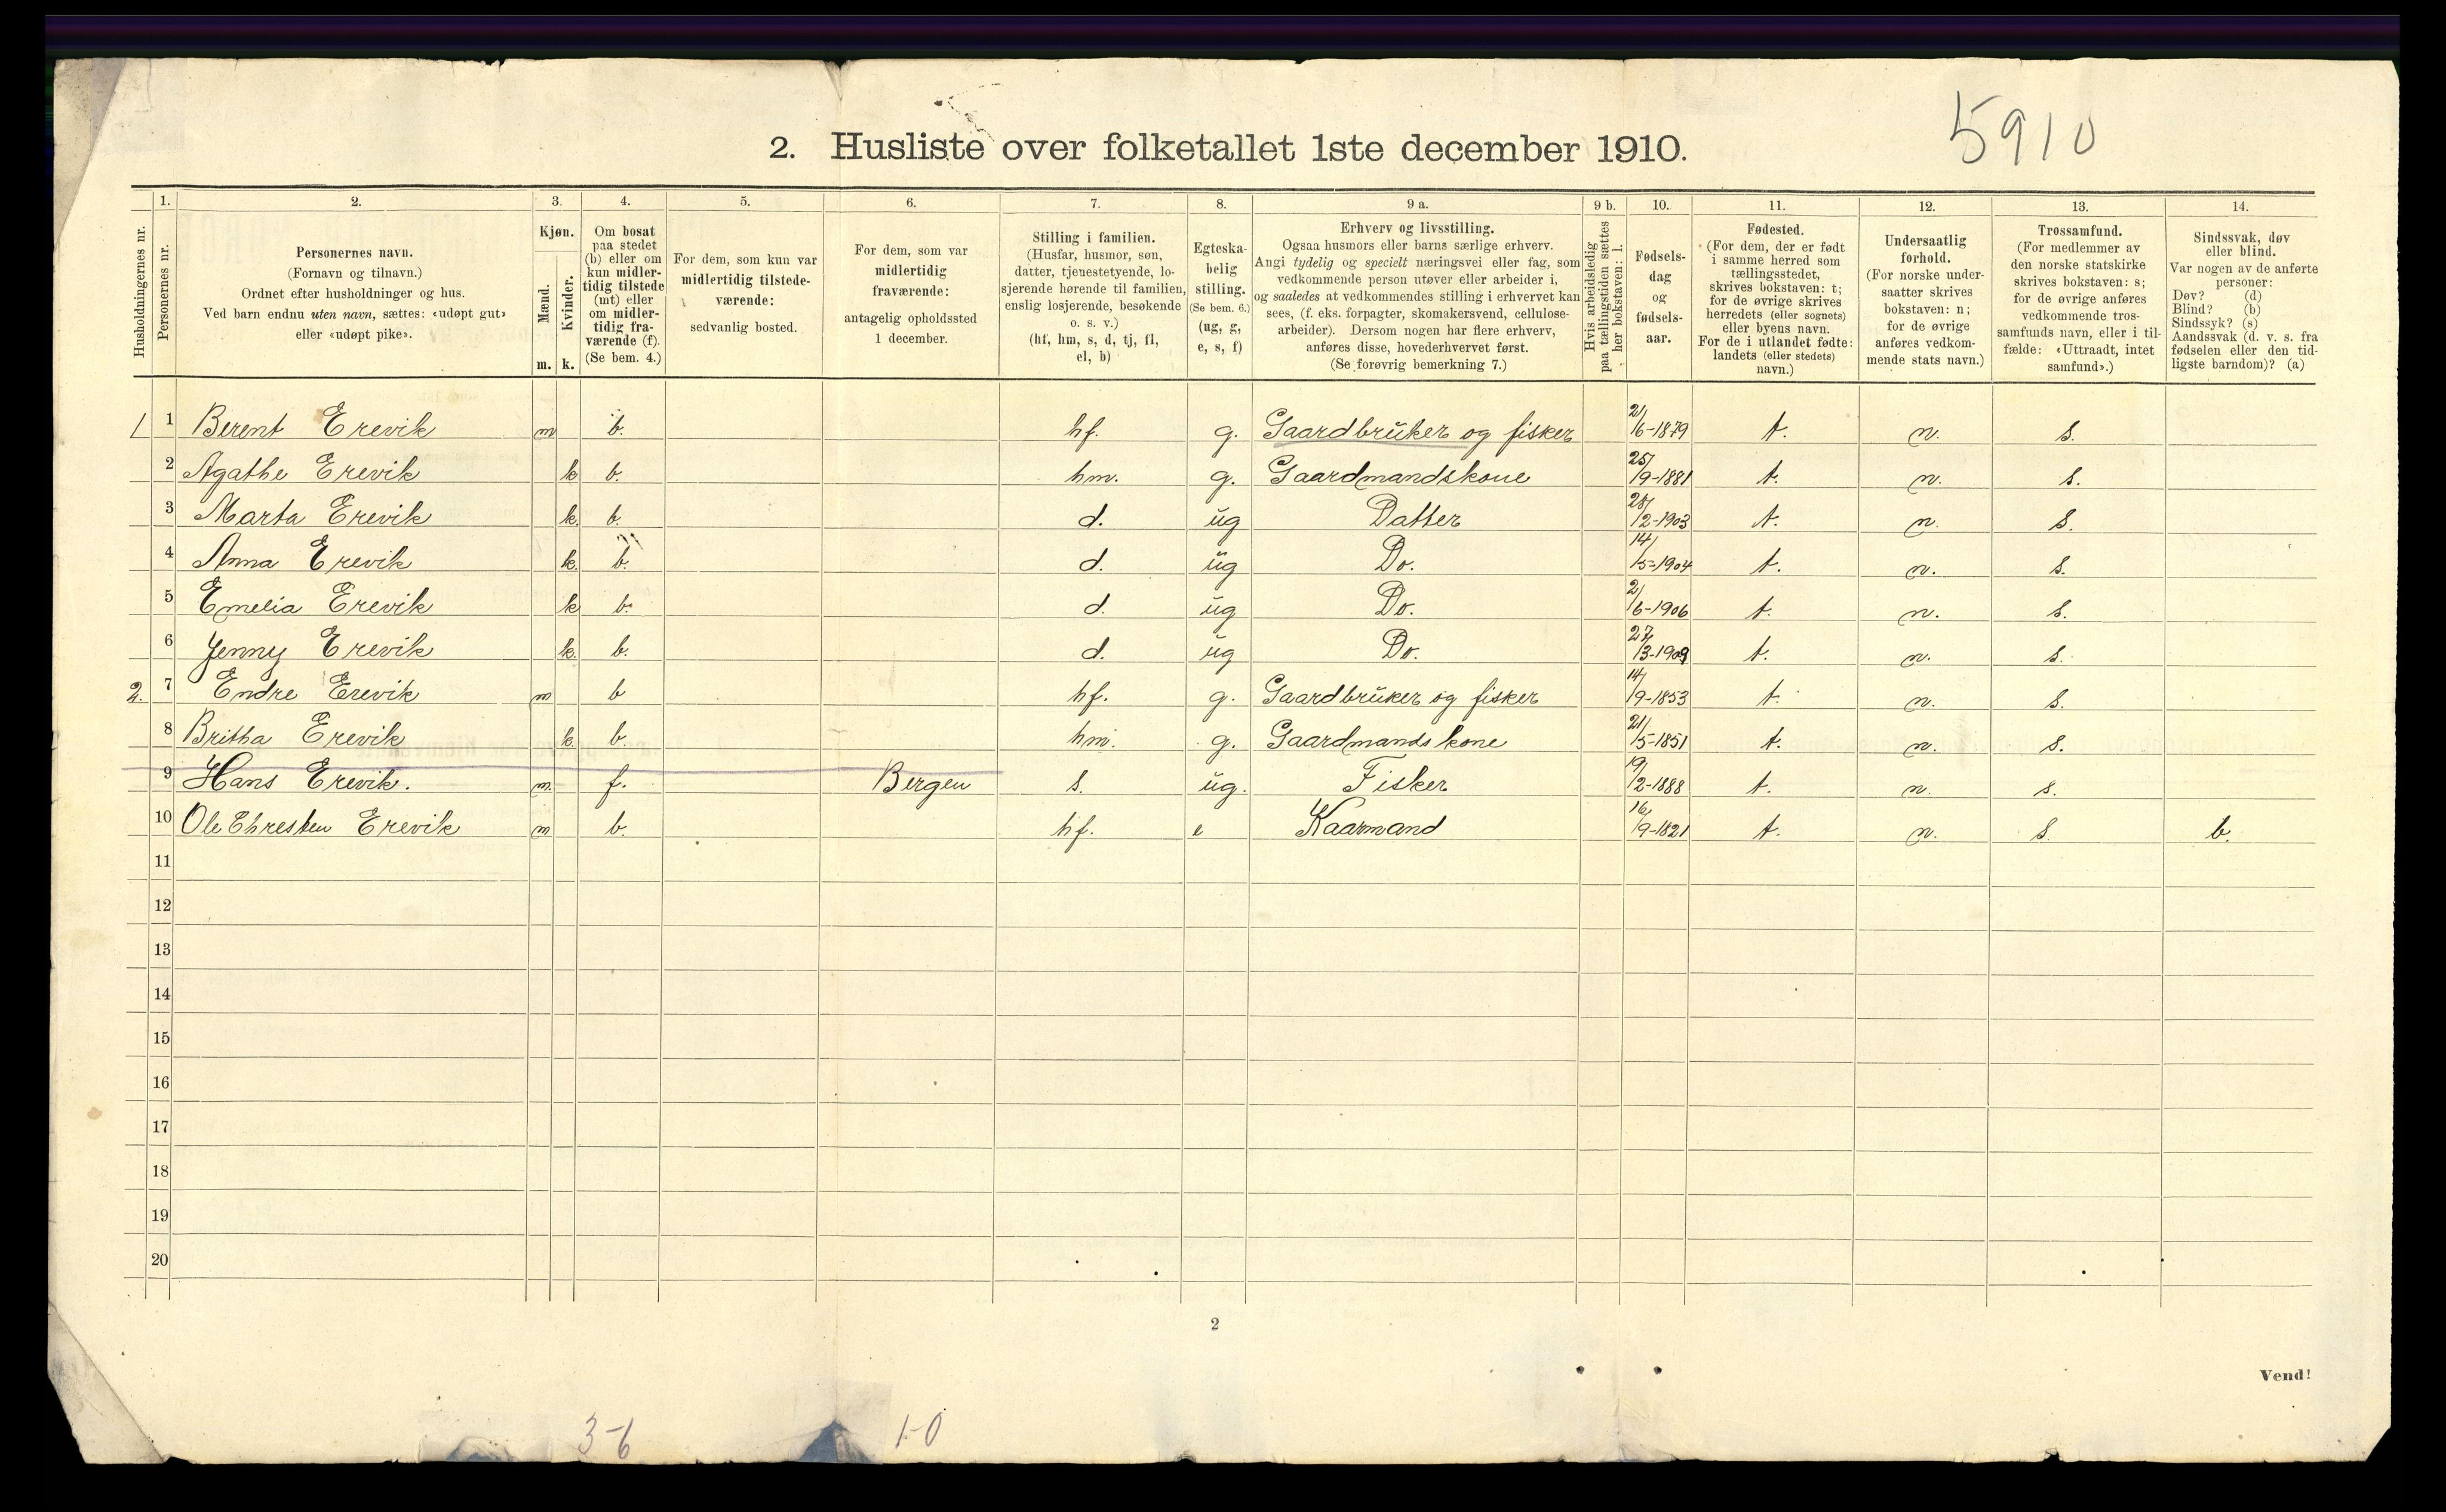 5910
2. Husliste over folketallet 1ste december 1910.
Husholdningernes nr.
1. Personernes nr.
2. Personernes navn.
(Fornavn og tilnavn.)
Ordnet efter husholdninger og hus.
Ved barn endnu uten navn, sættes: «udøpt gut»
eller «udøpt pike».
3. Kjøn.
Mænd. m.
Kvinder. k.
4. Om bosat
paa stedet
(b) eller om
kun midler-
tidig tilstede
(mt) eller
om midler-
tidig fra-
værende (f).
(Se bem. 4.)
5. For dem, som kun var
midlertidig tilstede-
værende:
sedvanlig bosted.
6. For dem, som var
midlertidig
fraværende:
antagelig opholdssted
1 december.
7. Stilling i familien.
(Husfar, husmor, søn,
datter, tjenestetyende, lo-
sjerende hørende til familien,
enslig losjerende, besøkende
o. s. v.)
(hf, hm, s, d, tj, fl,
el, b)
8. Egteska-
belig
stilling.
(Se bem. 6.)
(ug, g,
e, s, f)
9 a. Erhverv og livsstilling.
Ogsaa husmors eller barns særlige erhverv.
Angi tydelig og specielt næringsvei eller fag, som
vedkommende person utøver eller arbeider i,
og saaledes at vedkommendes stilling i erhvervet kan
sees, (f. eks. forpagter, skomakersvend, cellulose-
arbeider). Dersom nogen har flere erhverv,
anføres disse, hovederhvervet først.
(Se forøvrig bemerkning 7.)
9 b. Hvis arbeidsledig
paa tællingstiden sættes
her bokstaven: l.
10. Fødsels-
dag
og
fødsels-
aar.
11. Fødested.
(For dem, der er født
i samme herred som
tællingsstedet,
skrives bokstaven: t;
for de øvrige skrives
herredets (eller sognets)
eller byens navn.
For de i utlandet fødte:
landets (eller stedets)
navn.)
12. Undersaatlig
forhold.
(For norske under-
saatter skrives
bokstaven: n;
for de øvrige
anføres vedkom-
mende stats navn.)
13. Trossamfund.
(For medlemmer av
den norske statskirke
skrives bokstaven: s;
for de øvrige anføres
vedkommende tros-
samfunds navn, eller i til-
fælde: «Uttraadt, intet
samfund».)
14. Sindssvak, døv
eller blind.
Var nogen av de anførte
personer:
Døv? (d)
Blind? (b)
Sindssyk? (s)
Aandssvak (d. v. s. fra
fødselen eller den tid-
ligste barndom)? (a)
1 1 Berent Erevik m b. hf. g. Gaardbruker og fisker 2/6-1879 t. n. s.
2 Agathe Erevik k b. hm. g. Gaardmandskone 25/9-1881 t. n. s.
3 Marta Erevik k. b. d. ug Datter 28/2-1903 t. n. s.
4 Anna Erevik k. b. d. ug Do. 14/5-1904 t. n. s.
5 Emelia Erevik k b. d. ug Do. 2/6-1906 t. n. s.
6 Jenny Erevik k. b. d. ug Do. 27/3-1909 t. n. s.
2. 7 Endre Erevik m b hf. g. Gaardbruker og fisker 14/9-1853 t. n. s.
8 Britha Erevik k. b. hm. g. Gaardmandskone 21/5-1851 t. n. s.
9 Hans Erevik. m. f. Bergen s. ug. Fisker 19/2-1888 t. n. s.
10 Ole Chresten Erevik m b. hf. e Kaarmand 16/9-1821 t. n. s. b.
11
12
13
14
15
16
17
18
19
20
2
Vend!
3-6 1-0